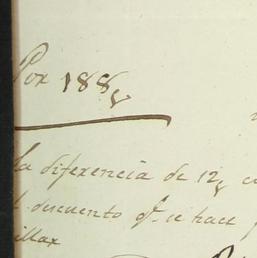 Por 188
la diferencia de 12
descuento qe. se hace